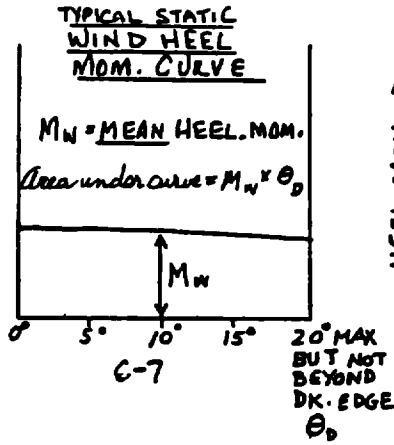 TYPICAL STATIC
WIND HEEL
MOM. CURVE
M_W = MEAN HEEL. MOM.
Area under curve = M_W × θ_D
M_W
0° 5° 10° 15° 20° MAX
BUT NOT
BEYOND
DK. EDGE
θ_D
C-7